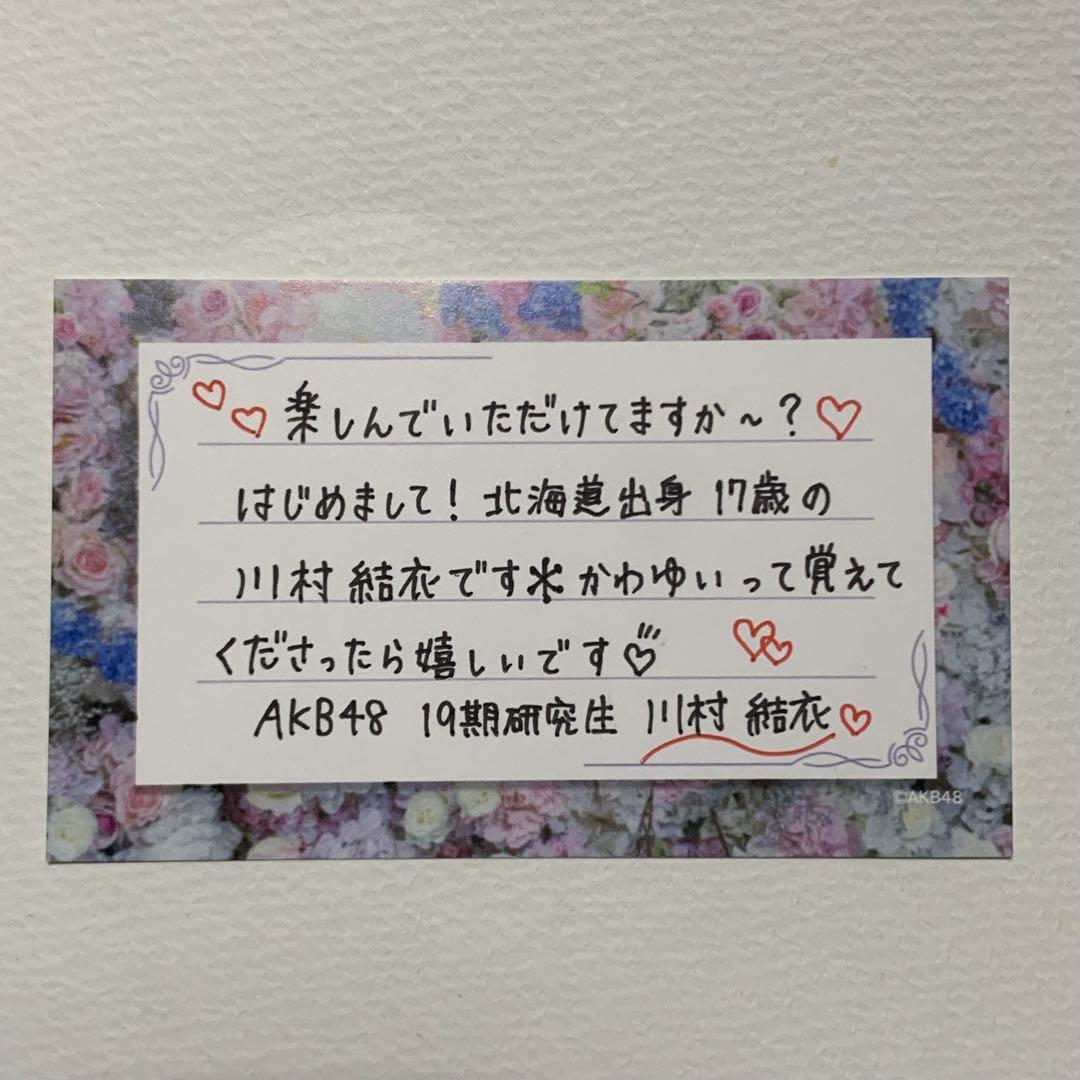 楽しんでいただけてますか～？
はじめまして！北海道出身 17歳の
川村 結衣です＊かわゆいって覚えて
くださったら嬉しいです
AKB48 19期研究生 川村 結衣
©AKB48